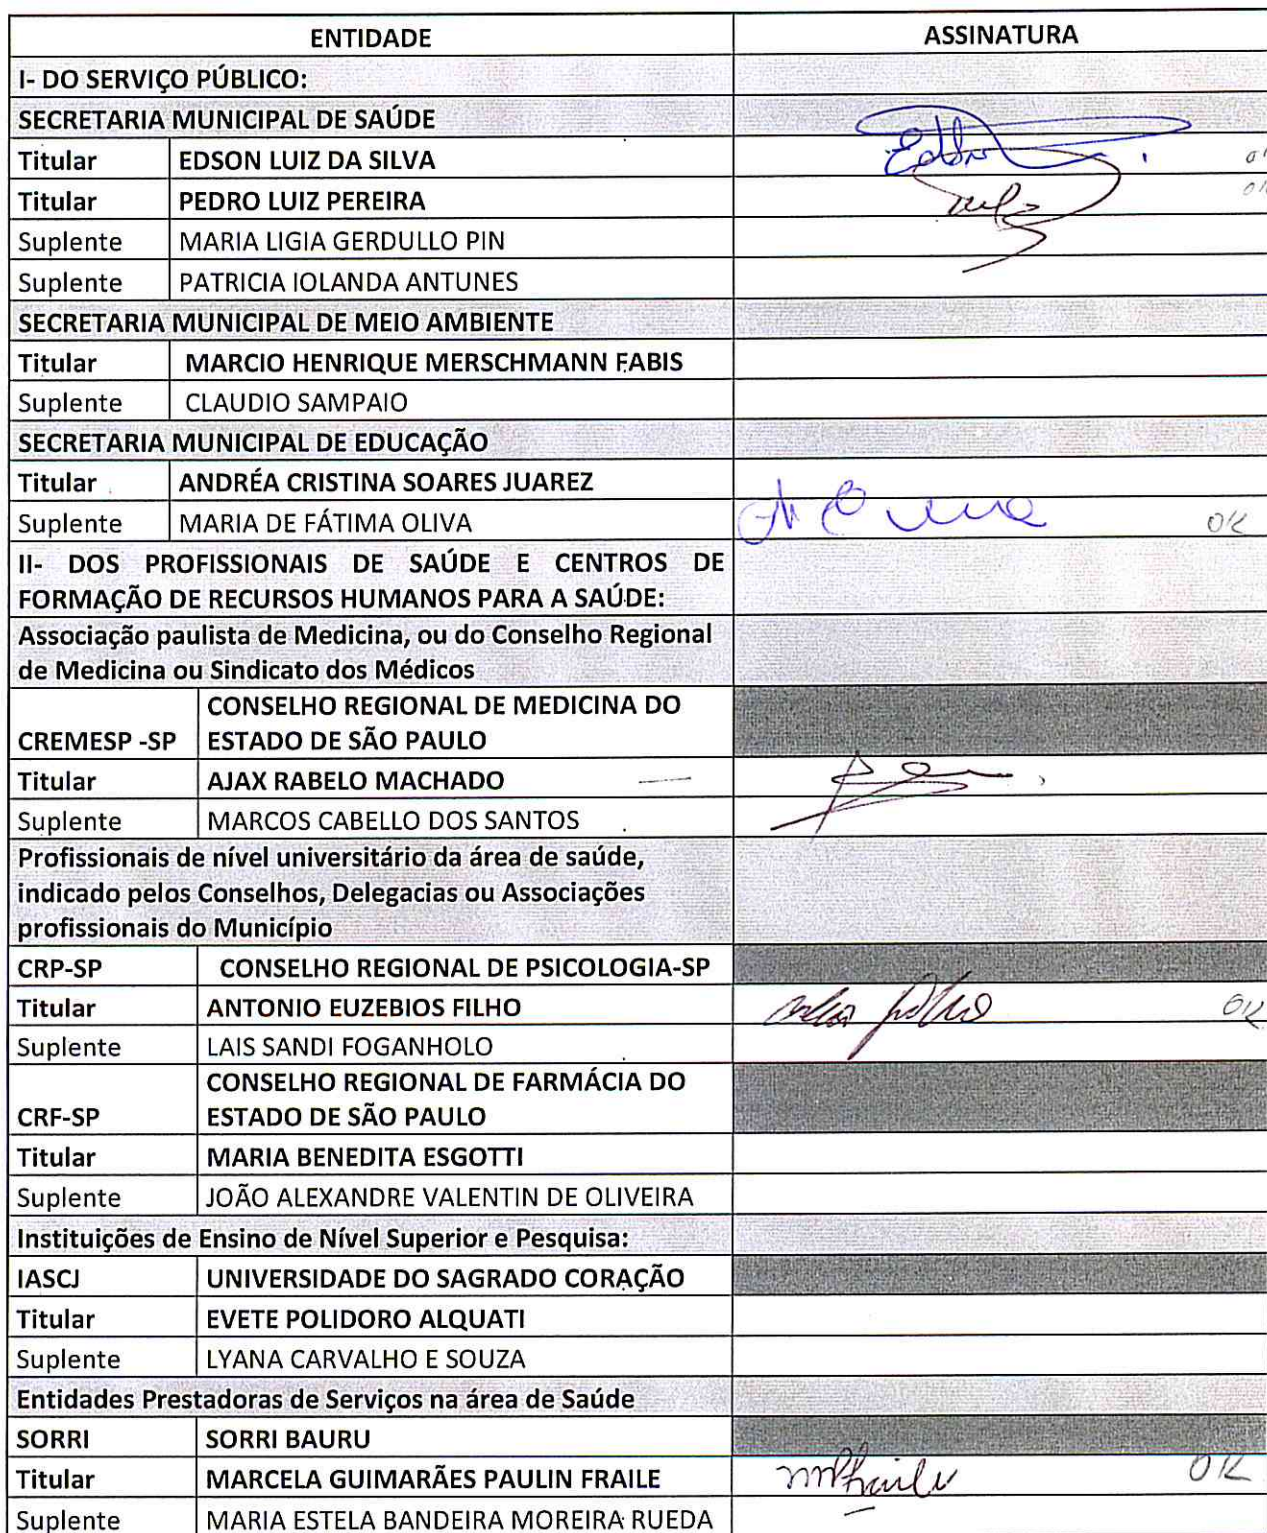 ENTIDADE ASSINATURA
I- DO SERVIÇO PÚBLICO:
SECRETARIA MUNICIPAL DE SAÚDE
Titular EDSON LUIZ DA SILVA
Titular PEDRO LUIZ PEREIRA
Suplente MARIA LIGIA GERDULLO PIN
Suplente PATRICIA IOLANDA ANTUNES
SECRETARIA MUNICIPAL DE MEIO AMBIENTE
Titular MARCIO HENRIQUE MERSCHMANN FABIS
Suplente CLAUDIO SAMPAIO
SECRETARIA MUNICIPAL DE EDUCAÇÃO
Titular ANDRÉA CRISTINA SOARES JUAREZ
Suplente MARIA DE FÁTIMA OLIVA OK
II- DOS PROFISSIONAIS DE SAÚDE E CENTROS DE
FORMAÇÃO DE RECURSOS HUMANOS PARA A SAÚDE:
Associação paulista de Medicina, ou do Conselho Regional
de Medicina ou Sindicato dos Médicos
CONSELHO REGIONAL DE MEDICINA DO
CREMESP -SP ESTADO DE SÃO PAULO
Titular AJAX RABELO MACHADO
Suplente MARCOS CABELLO DOS SANTOS
Profissionais de nível universitário da área de saúde,
indicado pelos Conselhos, Delegacias ou Associações
profissionais do Município
CRP-SP CONSELHO REGIONAL DE PSICOLOGIA-SP
Titular ANTONIO EUZEBIOS FILHO OK
Suplente LAIS SANDI FOGANHOLO
CONSELHO REGIONAL DE FARMÁCIA DO
CRF-SP ESTADO DE SÃO PAULO
Titular MARIA BENEDITA ESGOTTI
Suplente JOÃO ALEXANDRE VALENTIN DE OLIVEIRA
Instituições de Ensino de Nível Superior e Pesquisa:
IASCJ UNIVERSIDADE DO SAGRADO CORAÇÃO
Titular EVETE POLIDORO ALQUATI
Suplente LYANA CARVALHO E SOUZA
Entidades Prestadoras de Serviços na área de Saúde
SORRI SORRI BAURU
Titular MARCELA GUIMARÃES PAULIN FRAILE OK
Suplente MARIA ESTELA BANDEIRA MOREIRA RUEDA